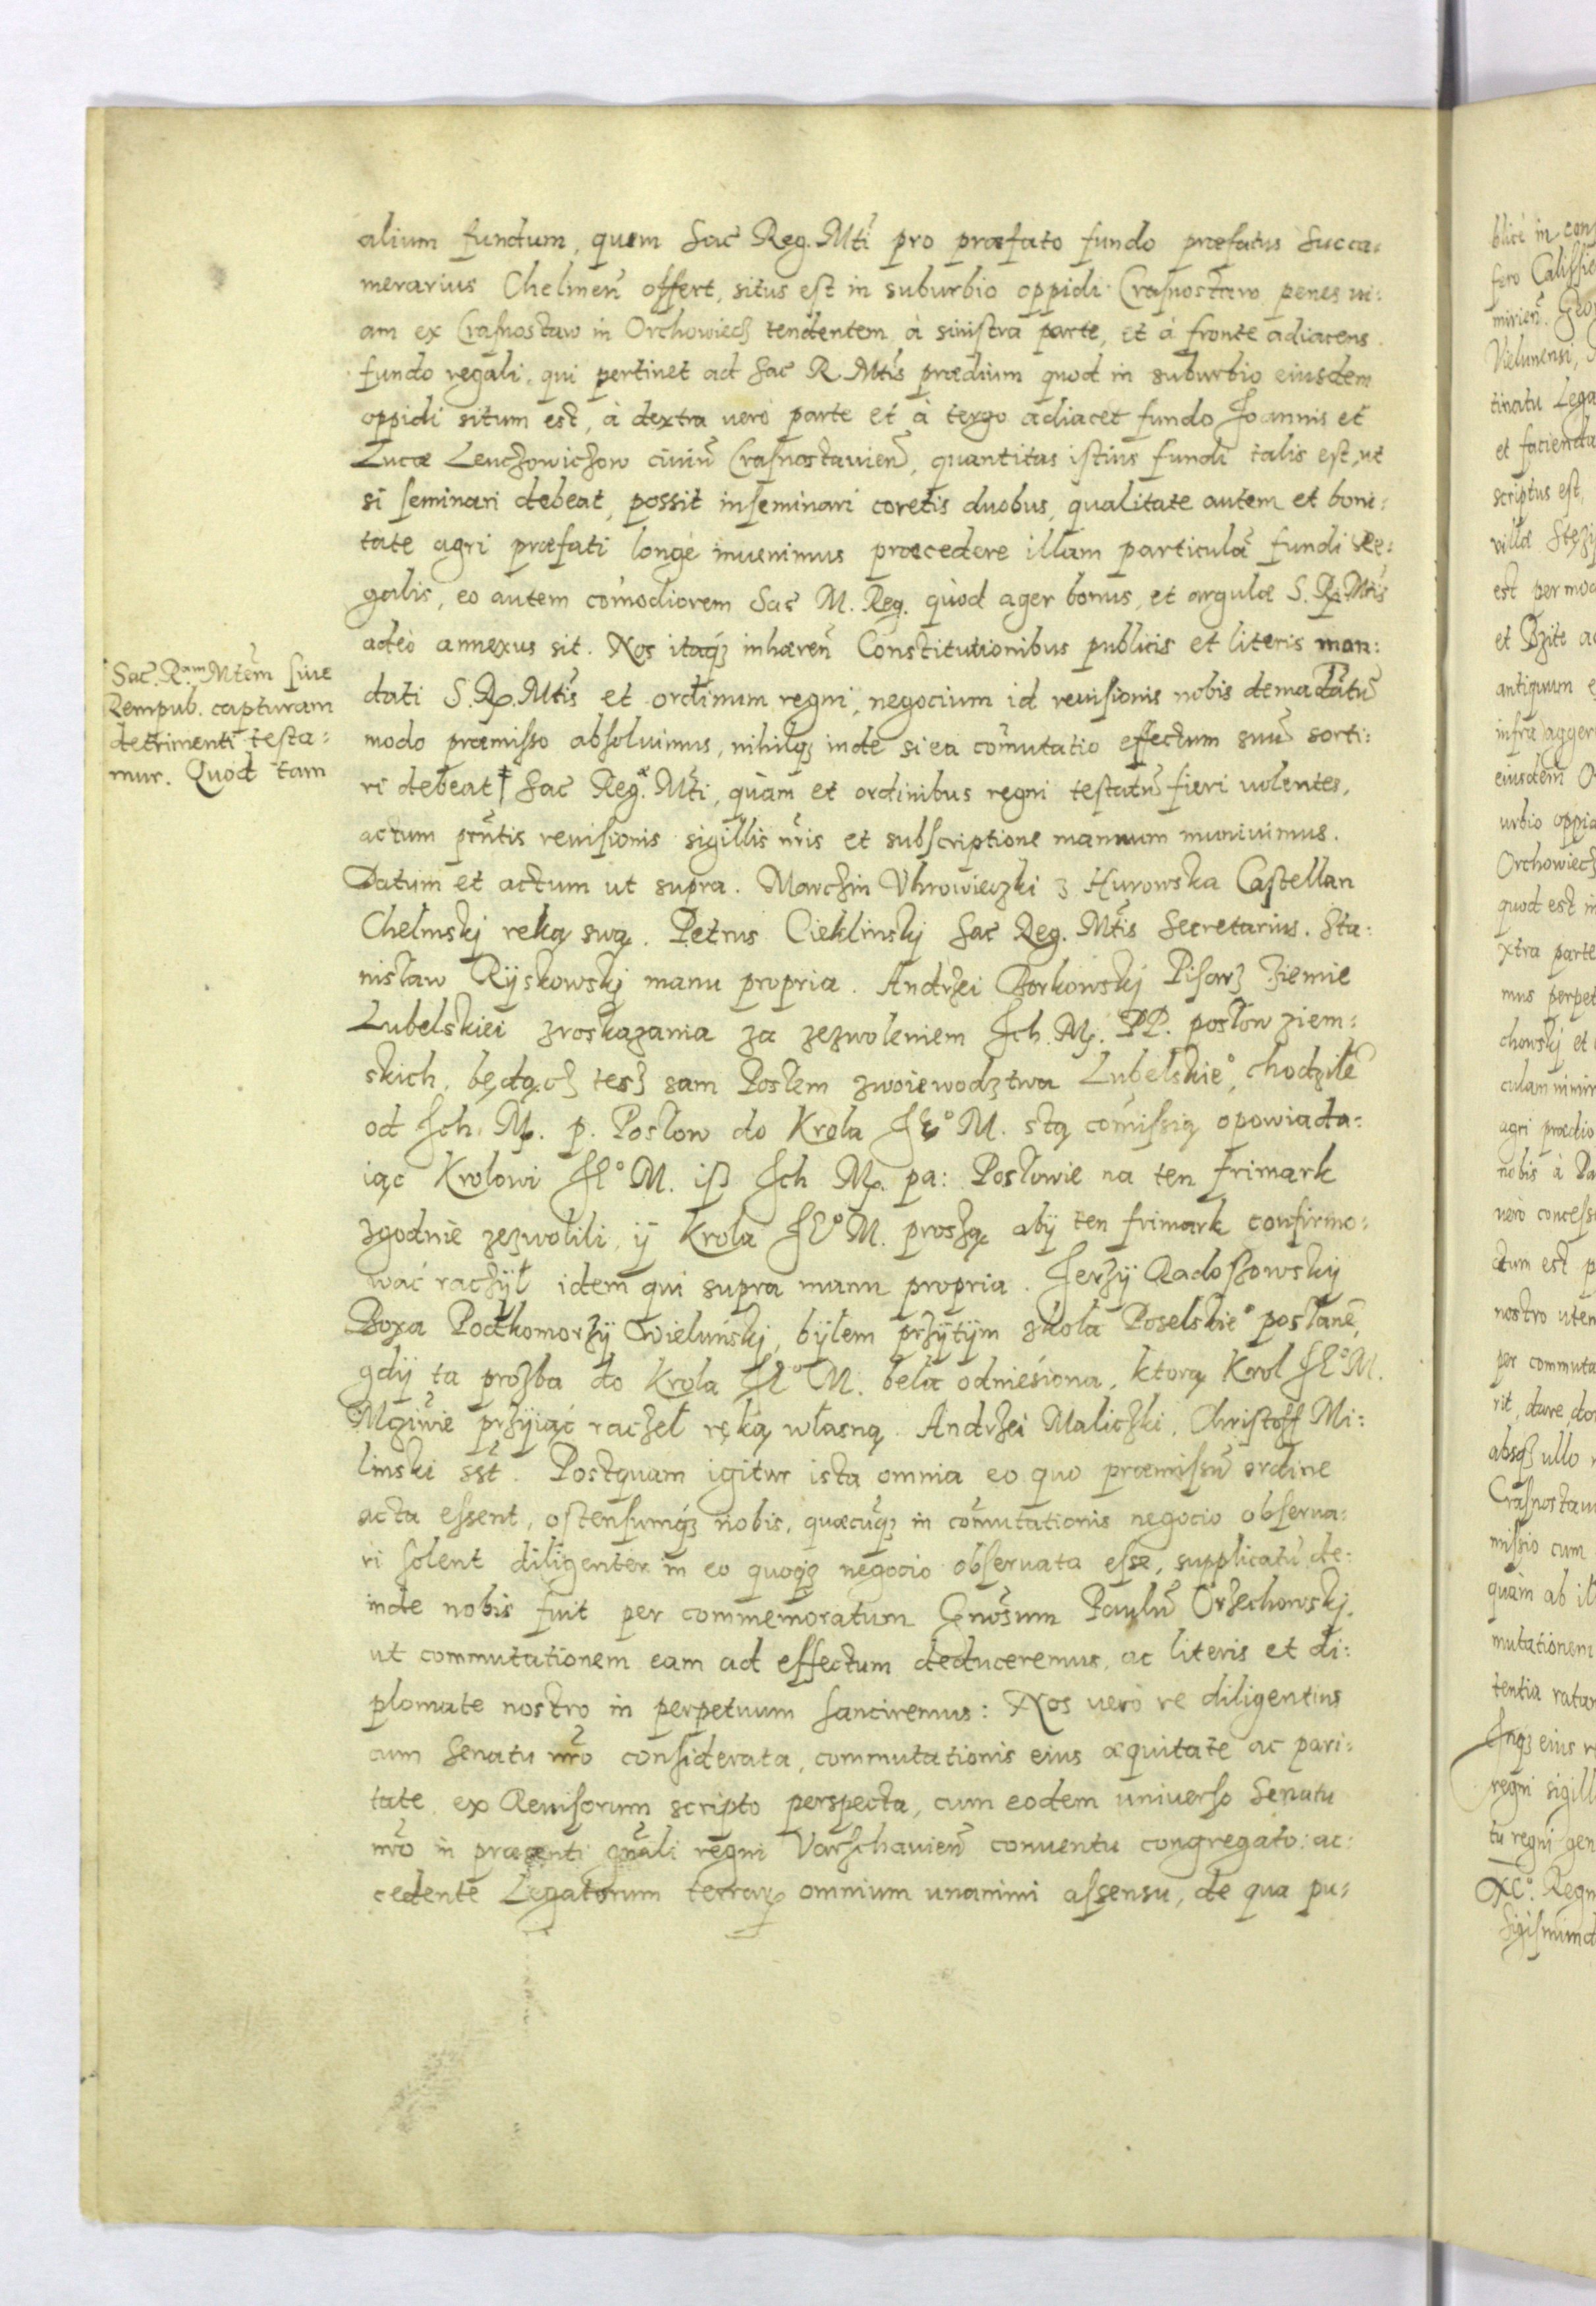 alium fundum, quem Sac̃ Reg. Mti̅ pro præfato fundo præfatus Succa:
merarius Chelmeñ offert, situs est in suburbio oppidi Crasnostaw penes ui:
am ex Crasnostaw in Orchowiecz tendentem à sinistra parte, et à fronte adiacens
fundo regali, qui pertinet ad Sac̃ R. Mtis prædium quod in suburbio eiusdem
oppidi situm est, à dextra uerò parte et à tergo adiacet fundo Joannis et
Lucæ Leuczowiczow ciuiũ Crasnostauieñ, quantitas istius fundi talis est, ut
si seminari debeat, possit inseminari coretis duobus, qualitate autem et boni:
tate agri præfati longè inuenimus præcedere illam particulã fundi Re:
galis, eo autem com̃odiorem Sac̃ M. Reg. quòd ager bonus, et argulæ S. R. Mtis
adeò annexus sit. Nos itaq; inhæreñ Constitutionibus publicis et literis man:
dati S. R. Mtis et ordinum regni, negocium id reuisionis nobis demãdatũ
modo præmisso absoluimus, nihilq; inde si ea com̃utatio effectum suũ sorti:
ri debeat † Sac̃ Reg.æ Mti, quàm et ordinibus regni testatũ fieri uolentes,
actum prñtis reuisionis sigillis nr̃is et subscriptione manuum muniuimus.
Datum et actum ut supra. Marczin Vhrowieczki z Hurowska Castellan
Chelmskj ręką swą. Petrus Cieklinskj Sac̃ Reg. Mtis Secretarius. Sta:
nisław Ryskowskj manu propria. Andrzei Borkowskj Pisarz ziemie
Lubelskiei zroskazania za zezwoleniem Jch. M. PP. posłow ziem:
skich, będącz tesz sam Posłem zwoiewodztwa Lubelskiẽ°, chodziłẽ
od Jch. M. p. Posłow do Krola JE° M. stą com̃issią opowiada:
iąc Krolowi JE° M. iß Jch M. pa: Posłowie na ten frimark
zgodnie zezwolili, ÿ Krola JE° M. proszą abÿ ten frimark confirmo:
wać raczÿł idem qui supra manu propria. Jerzÿ Radoszowskÿ
Boxa Podkomorzÿ Wieluńskj, bÿłem przÿtÿm zkoła Poselskie° posłanẽ,
gdÿ ta prozba do Krola JE° M. beła odniesiona, ktorą Krol JE° M.
Mgiwie przÿiąć raczeł ręką własną. Andrzei Maliczki, Christoff Mi:
linski sst̃. Postquam igitur ista omnia eo quo præmissũ ordine
acta essent, ostensumq; nobis, quæcũq; in com̃utationis negocio obserua:
ri solent diligenter in eo quoq; negocio obseruata esse, supplicatũ de:
inde nobis fuit per commemoratum Gnõsum Paulũ Orzechowskj,
ut commutationem eam ad effectum deduceremus, ac literis et di:
plomate nostro in perpetuum sanciremus: Nos uerò re diligentius
cum Senatu nr̃o considerata, commutationis eius æquitate ac pari:
tate, ex Reuisorum scripto perspecta, cum eodem uniuerso Senatu
nr̃o in præsenti gñali regni Varschauieñ conuentu congregato: ac:
cedente Legatorum terrarꝝ omnium unanimi assensu, de qua pu:
Sac. R.am Mtẽm siue
Rempub. capturam
detrimenti testa:
mur. Quod tam